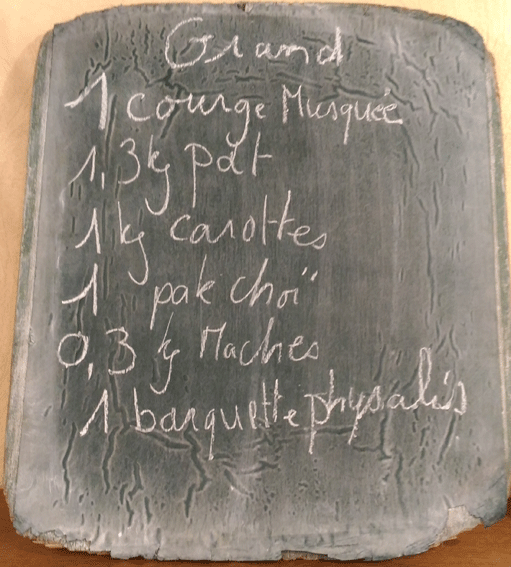 Grand
1 courge Musquée
1,3 kg pdt
1 kg carottes
1 pak choï
0,3 kg Maches
1 barquette physalis